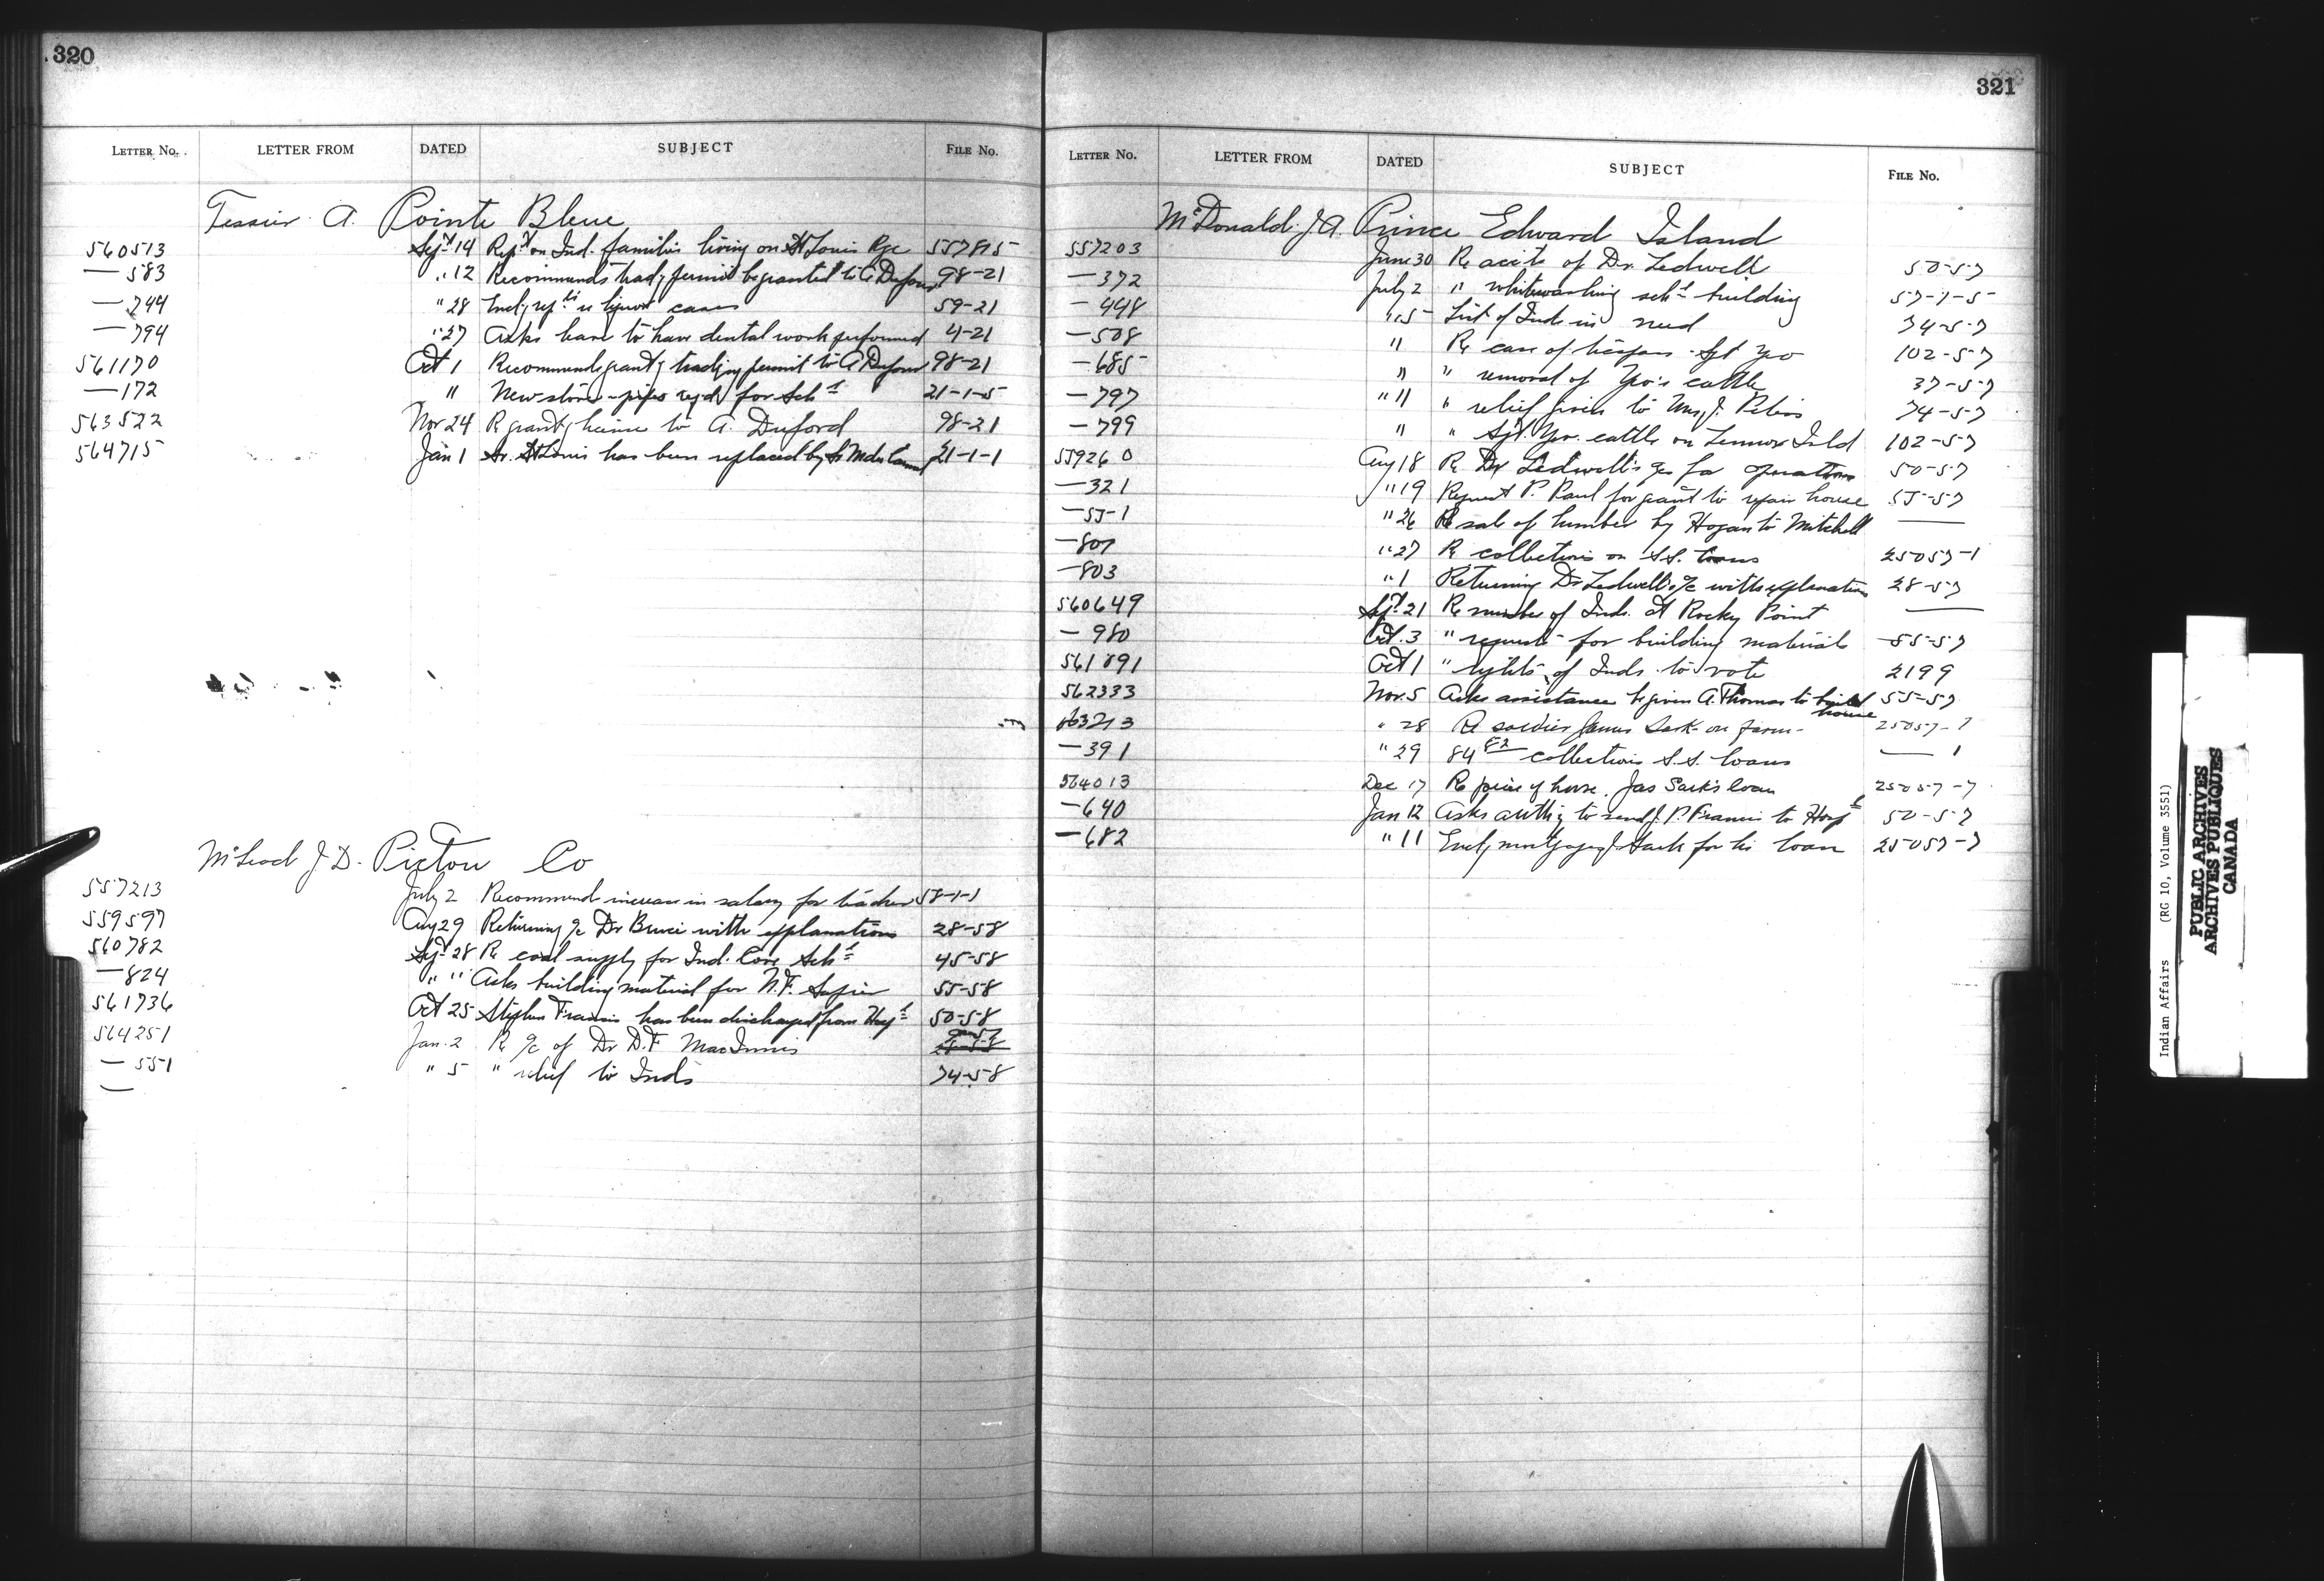 320
LETTER NO. LETTER FROM DATED SUBJECT FILE NO.
Tessier A. Pointe Bleue
560513 Sept 14 Rept on Ind. families living on St Louis Rge 557815
— 583 " 12 Recommends trad'g permit be granted to A Duford 98-21
— 744 " 28 Encl'g rep ts re liquor cases 59-21
— 794 " 27 Asks leave to have dental work performed 4-21
561170 Oct 1 Recommends grant'g trading permit to A Duford 98-21
— 172 " New stove-pipes reqd for Schl 21-1-5
563522 Nov 24 R grant'g license to A. Duford 98-21
564715 Jan 1 Sr. St Louis has been replaced by Sr 21-1-1
McLeod J. D. Pictou Co
557213 July 2 Recommends increase in salary for teacher 58-1-1
559597 Aug 29 Returning a/c Dr Bruce with explanations 28-58
560782 Sept 28 Re coal supply for Ind. Cove Schl 45-58
— 824 " " Asks building material for N.F. 55-58
561736 Oct 25 Stephen Francis has been discharged from Hospl 50-58
564251 Jan. 2 Re a/c of Dr D.F MacInnis 28-58
— 551 " 5 " relief to Inds 74-58
—
321
LETTER NO. LETTER FROM DATED SUBJECT FILE NO.
McDonald J. A. Prince Edward Island
557203 June 30 Re accts of Dr. Ledwell 50-57
— 372 July 2 " whitewashing schl building 57-1-5
— 448 " 5 List of Inds in need 74-57
— 508 " Re case of trespass - Sgt Yeo 102-57
— 685 " " removal of Yeo's cattle 37-57
— 797 " 11 " relief given to Mrs J. 74-57
— 799 " " Sgt. Yeo. cattle on Lennox Isld 102-57
559260 Aug 18 Re Dr Ledwell's for operations 50-57
— 321 " 19 Request P. Paul for grant to repair house 55-57
— 551 " 26 Re sale of lumber by Hogan to Mitchell —
— 807 " 27 Re collections on S.S. loans 25057-1
— 803 " 1 Returning Dr Ledwell's a/c with explanations 28-57
560649 Sept 21 Re number of Inds. at Rocky Point —
— 980 Oct. 3 " requests for building material 55-57
561891 Oct 1 " rights of Inds. to vote 2199
562333 Nov. 5 Asks assistance be given A. Thomas to build house 55-57
563213 " 28 Re soldier James Sark on farm 25057-7
— 391 " 29 collections S.S. loans — 1
564013 Dec 17 Re price of horse. Jas Sark's loan 25057-7
— 640 Jan 12 Asks auth'y to send J. P. Francis to Hospl 50-57
— 682 " 11 Encl'g mortgage J Sark for his loan 25057-7
Indian Affairs (RG 10, Volume 3551)
PUBLIC ARCHIVES
ARCHIVES PUBLIQUES
CANADA